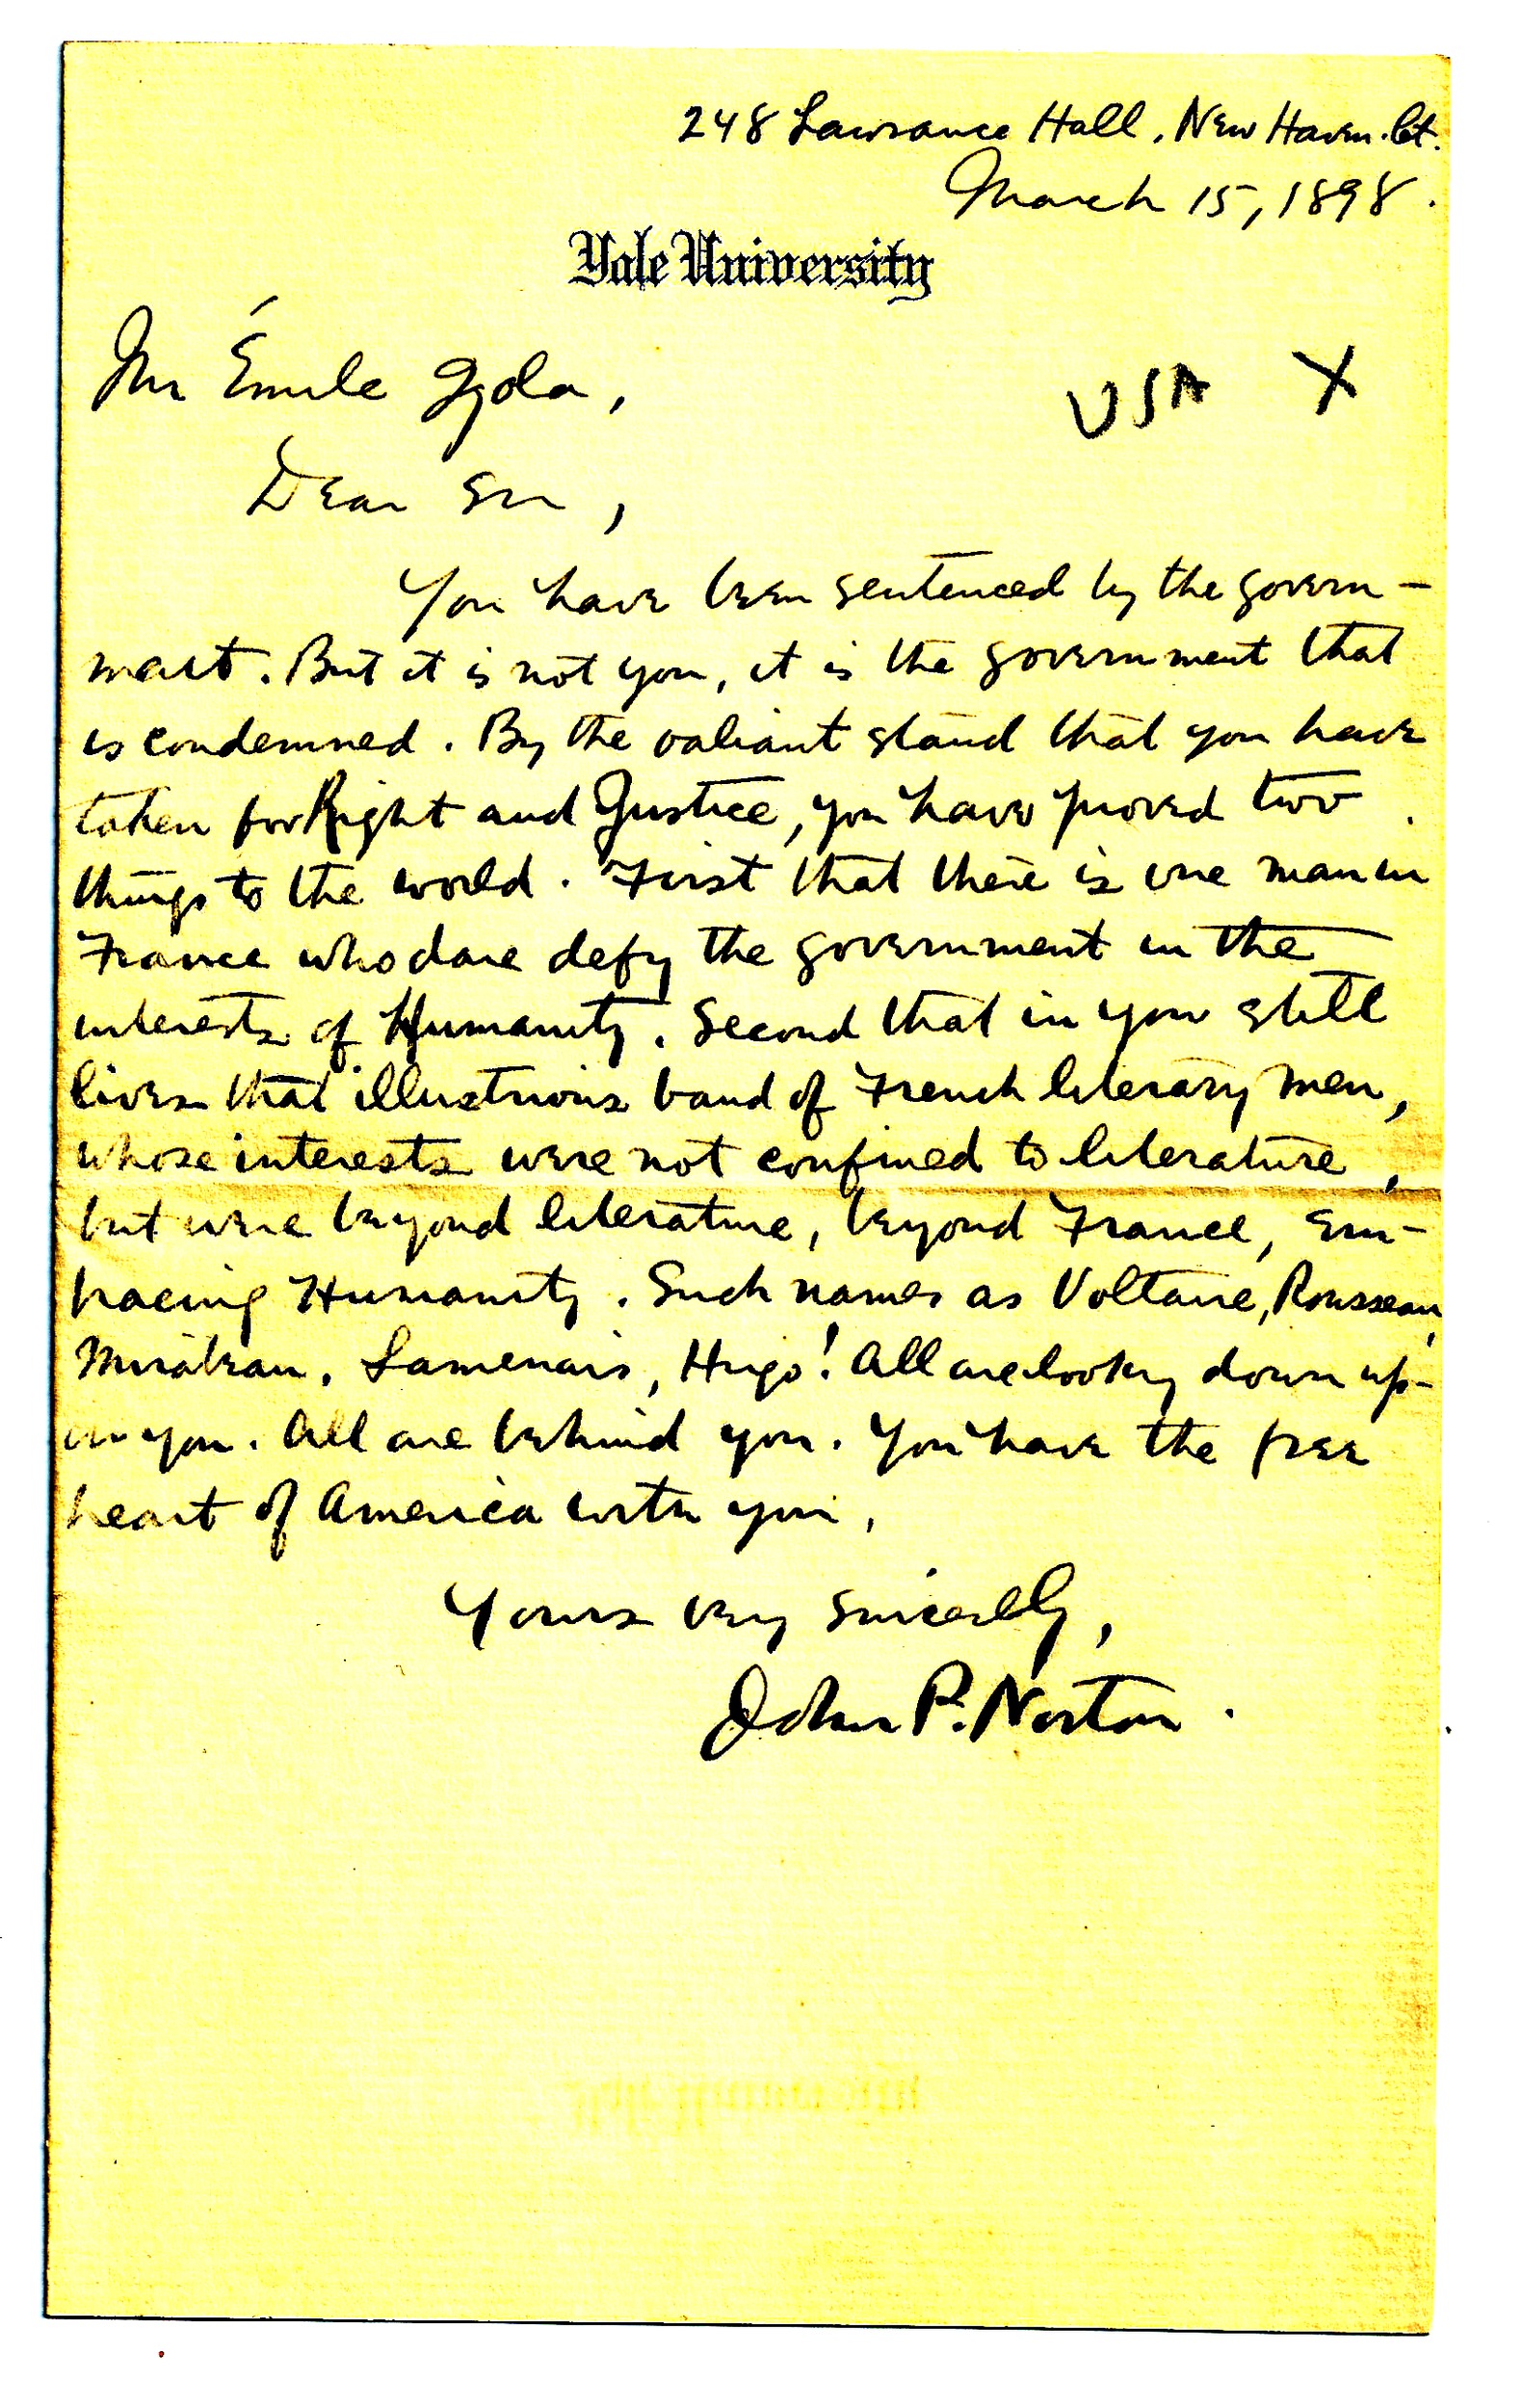 248 Lawrance Hall, New Haven. Ct.
March 15, 1898.
Yale University
Mr Émile Zola,
USA X
Dear Sir,
You have been sentenced by the govern-
ment. But it is not you, it is the government that
is condemned. By the valiant stand that you have
taken for Right and Justice, you have proved two
things to the world. First that there is one man in
France who dare defy the government in the
interests of Humanity. Second that in you still
lives that illustrious band of French literary men,
whose interests were not confined to literature,
but were beyond literature, beyond France, em-
bracing Humanity. Such names as Voltaire, Rousseau,
Mirabeau, Lamenais, Hugo! All are looking down up-
on you. All are behind you. You have the free
heart of America with you.
Yours very sincerely,
John P. Norton.